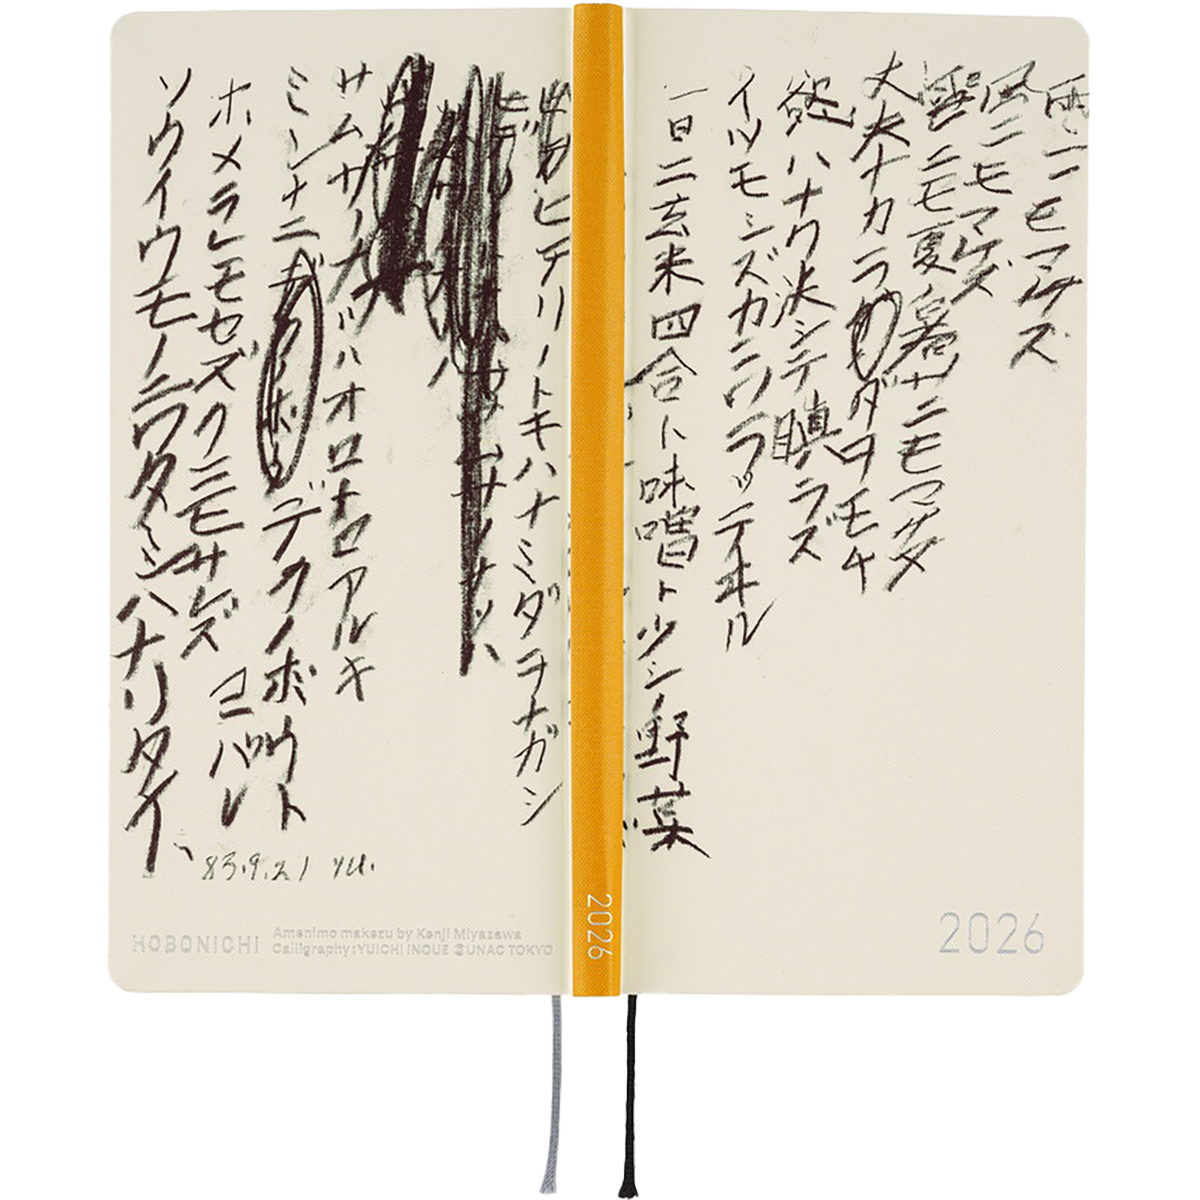 雨ニモマケズ
風ニモマケズ
雪ニモ夏ノ暑サニモマケヌ
丈夫ナカラダヲモチ
慾ハナク決シテ瞋ラズ
イツモシズカニワラッテヰル
一日ニ玄米四合ト味噌ト少シノ野菜
2026
2026
ヒデリノトキハナミダヲナガシ
サムサノナツハオロオロアルキ
ミンナニデクノボウトヨバレ
ホメラレモセズクニモサレズ
ソウイウモノニワタシハナリタイ、
83.9.21 yu.
HOBONICHI
Amenimo makezu by Kenji Miyazawa
Calligraphy:YUICHI INOUE ©UNAC TOKYO